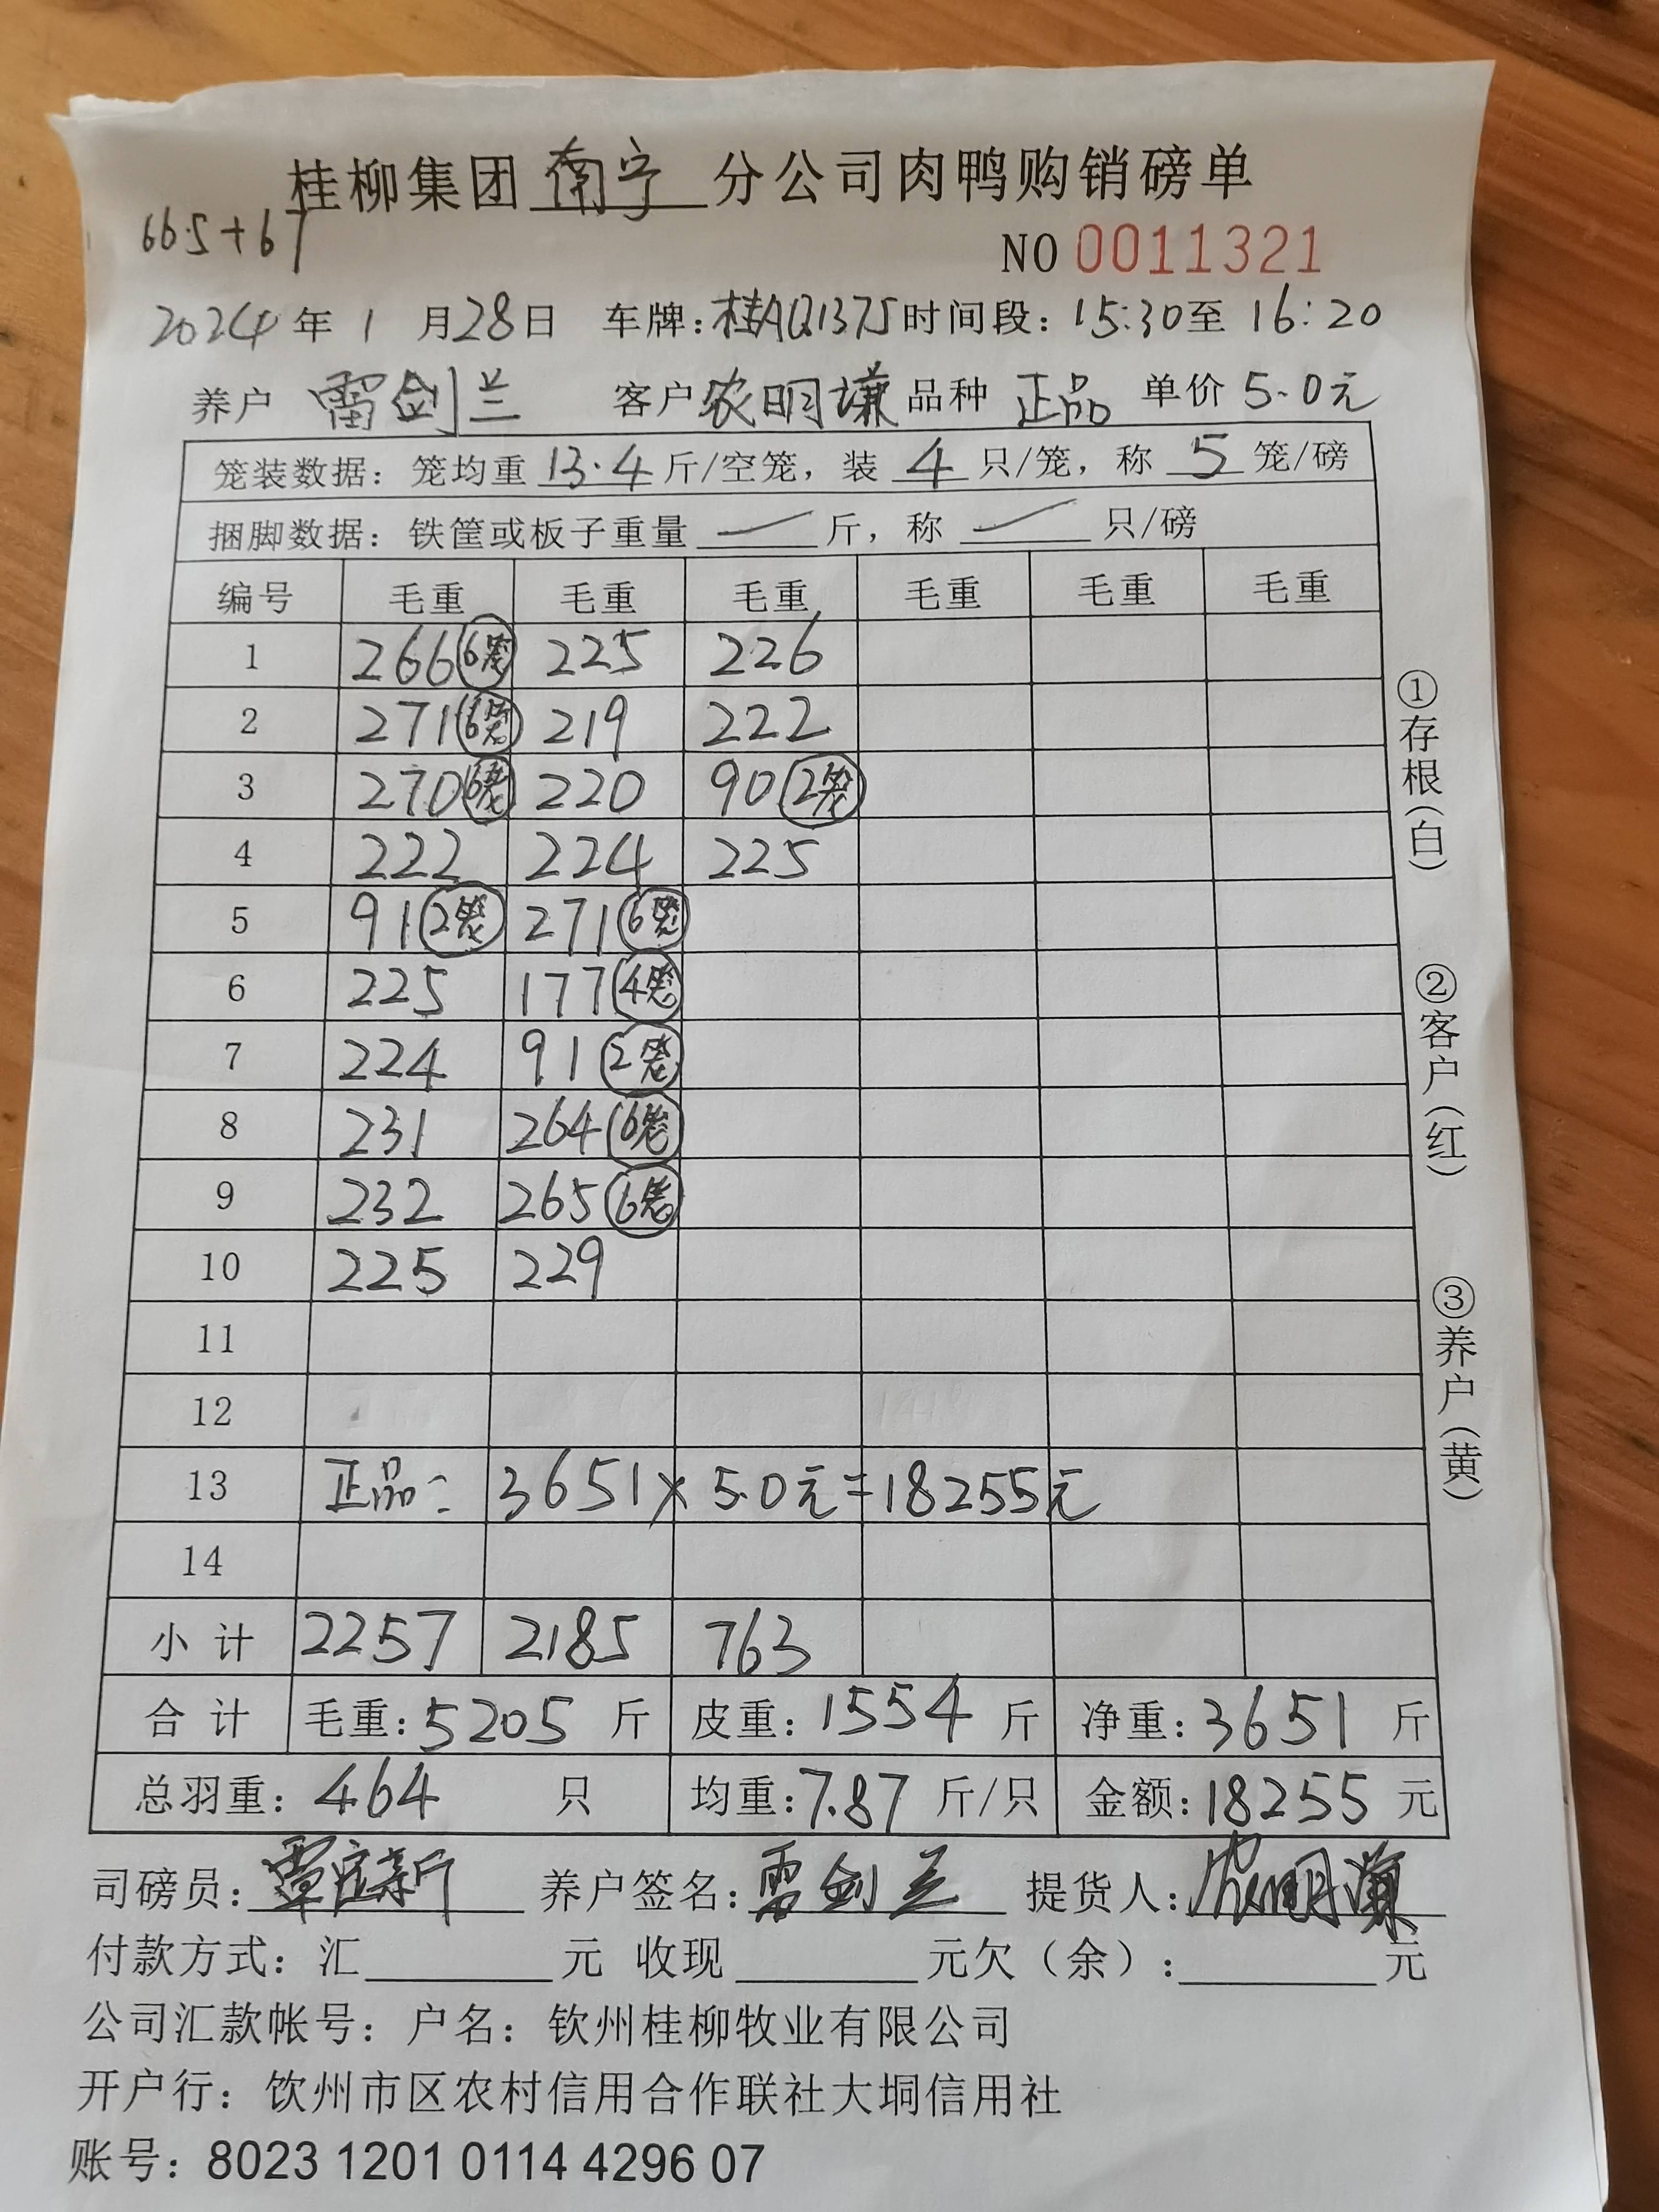 桂柳集团南宁分公司肉鸭购销磅单
66.5+67
NO 0011321
2024年1月28日 车牌:桂AQ1375时间段:15:30至16:20
养户 雷剑兰 客户农明谦品种 正品 单价5.0元
笼装数据:笼均重13.4斤/空笼,装4只/笼,称5笼/磅
捆脚数据:铁筐或板子重量 斤,称 只/磅
编号 毛重 毛重 毛重 毛重 毛重 毛重
1 266 6笼 225 226
2 271 6笼 219 222
3 270 6笼 220 90 2笼
4 222 224 225
5 91 2笼 271 6笼
6 225 177 4笼
7 224 91 2笼
8 231 264 6笼
9 232 265 6笼
10 225 229
11
12
13 正品: 3651×5.0元=18255元
14
小计 2257 2185 763
合计 毛重:5205斤 皮重:1554斤 净重:3651斤
总羽重:464只 均重:7.87斤/只 金额:18255元
司磅员:覃 新 养户签名:雷剑兰 提货人:农明谦
付款方式:汇 元 收现 元欠(余): 元
公司汇款帐号:户名:钦州桂柳牧业有限公司
开户行:钦州市区农村信用合作联社大垌信用社
账号:8023 1201 0114 4296 07
①存根(白)
②客户(红)
③养户(黄)